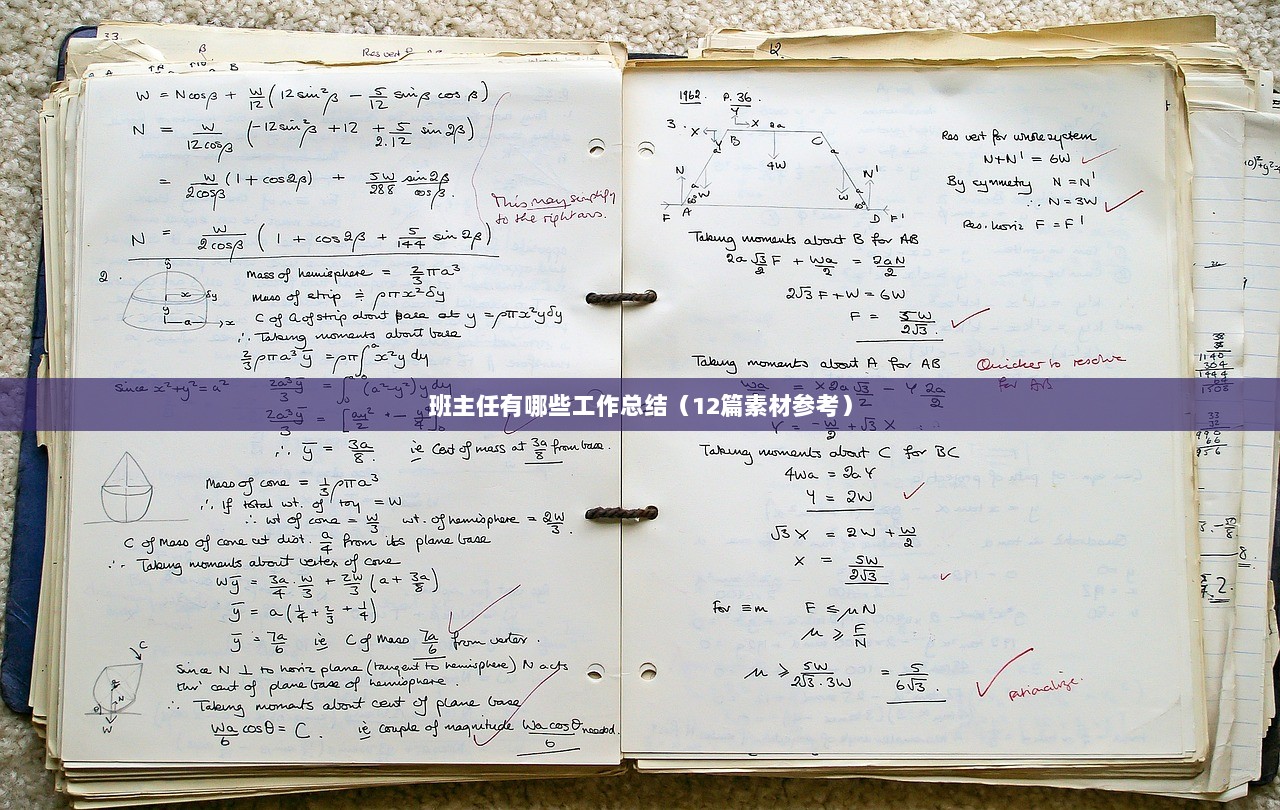 33.
W = Ncosβ + W/12 (12sin²β − 5/12 sinβ cosβ)
N = W/12cosβ (−12sin²β + 12 + 5/2.12 sin2β)
= W/2cosβ (1 + cos2β) + 5W/288 sin2β/cosβ.
This may simplify
to the right ans.
N = W/2cosβ (1 + cos2β + 5/144 sin2β)
2.
Mass of hemisphere = 2/3 πa³
mass of strip ≑ ρπx²δy
C of G of strip about base at y = ρπx²yδy
∴ Taking moments about base
2/3 ρπa³ȳ = ρπ∫x²y dy
Since x²+y²=a² 2a³ȳ/3 = ∫(a²−y²)y dy
班主任有哪些工作总结（12篇素材参考）
∴ ȳ = 3a/8 ie Cent of mass at 3a/8 from base.
Mass of cone = 1/3 ρπa³
∴ If total wt. of toy = W
∴ wt of cone = W/3 wt. of hemisphere = 2W/3.
C of Mass of cone at dist. a/4 from its plane base
∴ Taking moments about vertex of cone
Wȳ = 3a/4 · W/3 + 2W/3 (a + 3a/8)
ȳ = a(1/4 + 2/3 + 1/4)
ȳ = 7a/6 ie C of Mass 7a/6 from vertex.
Since N ⊥ to horiz plane (tangent to hemisphere) N acts
thro' cent of plane base of hemisphere.
∴ Taking moments about cent of plane base
Wa/6 cosθ = C. ie couple of magnitude Wa cosθ/6 needed.
1962. P. 36.
3.
Res vert for whole system
N+N' = 6W
By symmetry N = N'
∴ N = 3W
Res. horiz F = F'
Taking moments about B for AB
2a √3/2 F + Wa/2 = 2aN/2
2√3 F + W = 6W
F = 5W/2√3.
Taking moments about A for AB
Quicker to resolve
for AB
Wa/2 = X2a√3/2 − Y 2a/2
Y = −W/2 + √3 X
Taking moments about C for BC
4Wa = 2aY
Y = 2W
√3 X = 2W + W/2
X = 5W/2√3
For ≡m F ≤ μN
μ ≥ F/N
μ ≥ 5W/2√3·3W = 5/6√3.
rationalize.